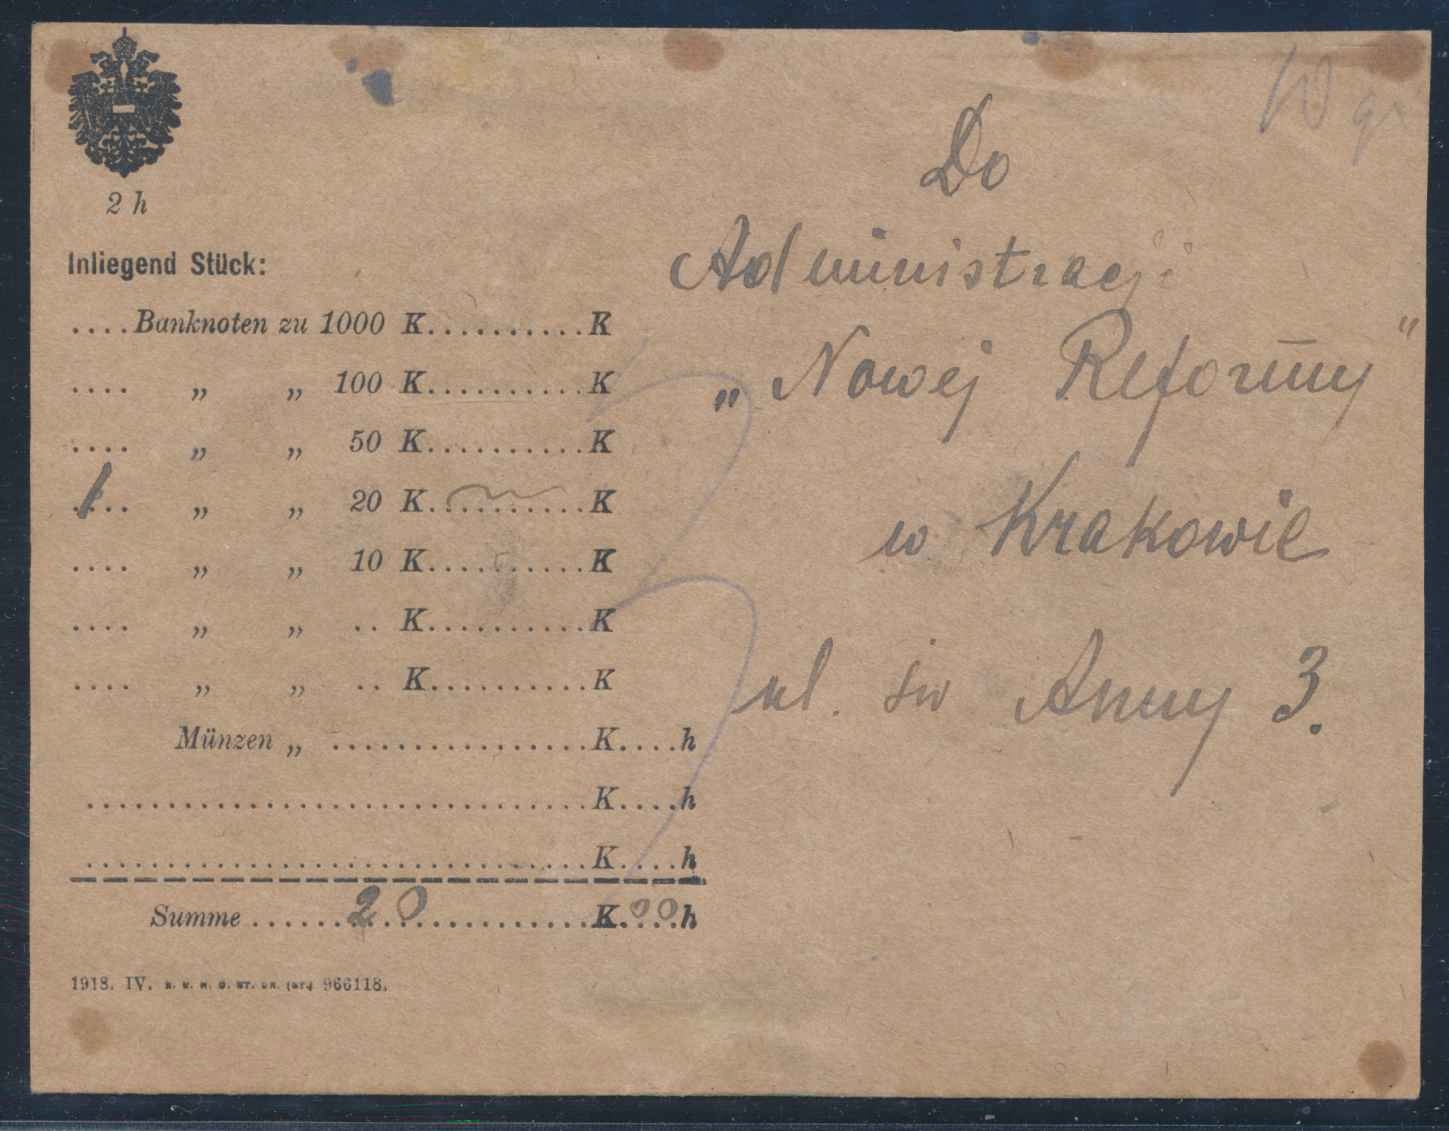 2 h
Inliegend Stück:
....Banknoten zu 1000 K..........K
.... „ „ 100 K..........K
.... „ „ 50 K..........K
1... „ „ 20 K..........K
.... „ „ 10 K..........K
.... „ „ .. K..........K
.... „ „ .. K..........K
Münzen „ ................K....h
...............................K....h
...............................K....h
Summe ......20...........K.00.h
1918. IV. 966118.
Do
Administracji
„Nowej Reformy"
w Krakowie
ul. św Anny 3.